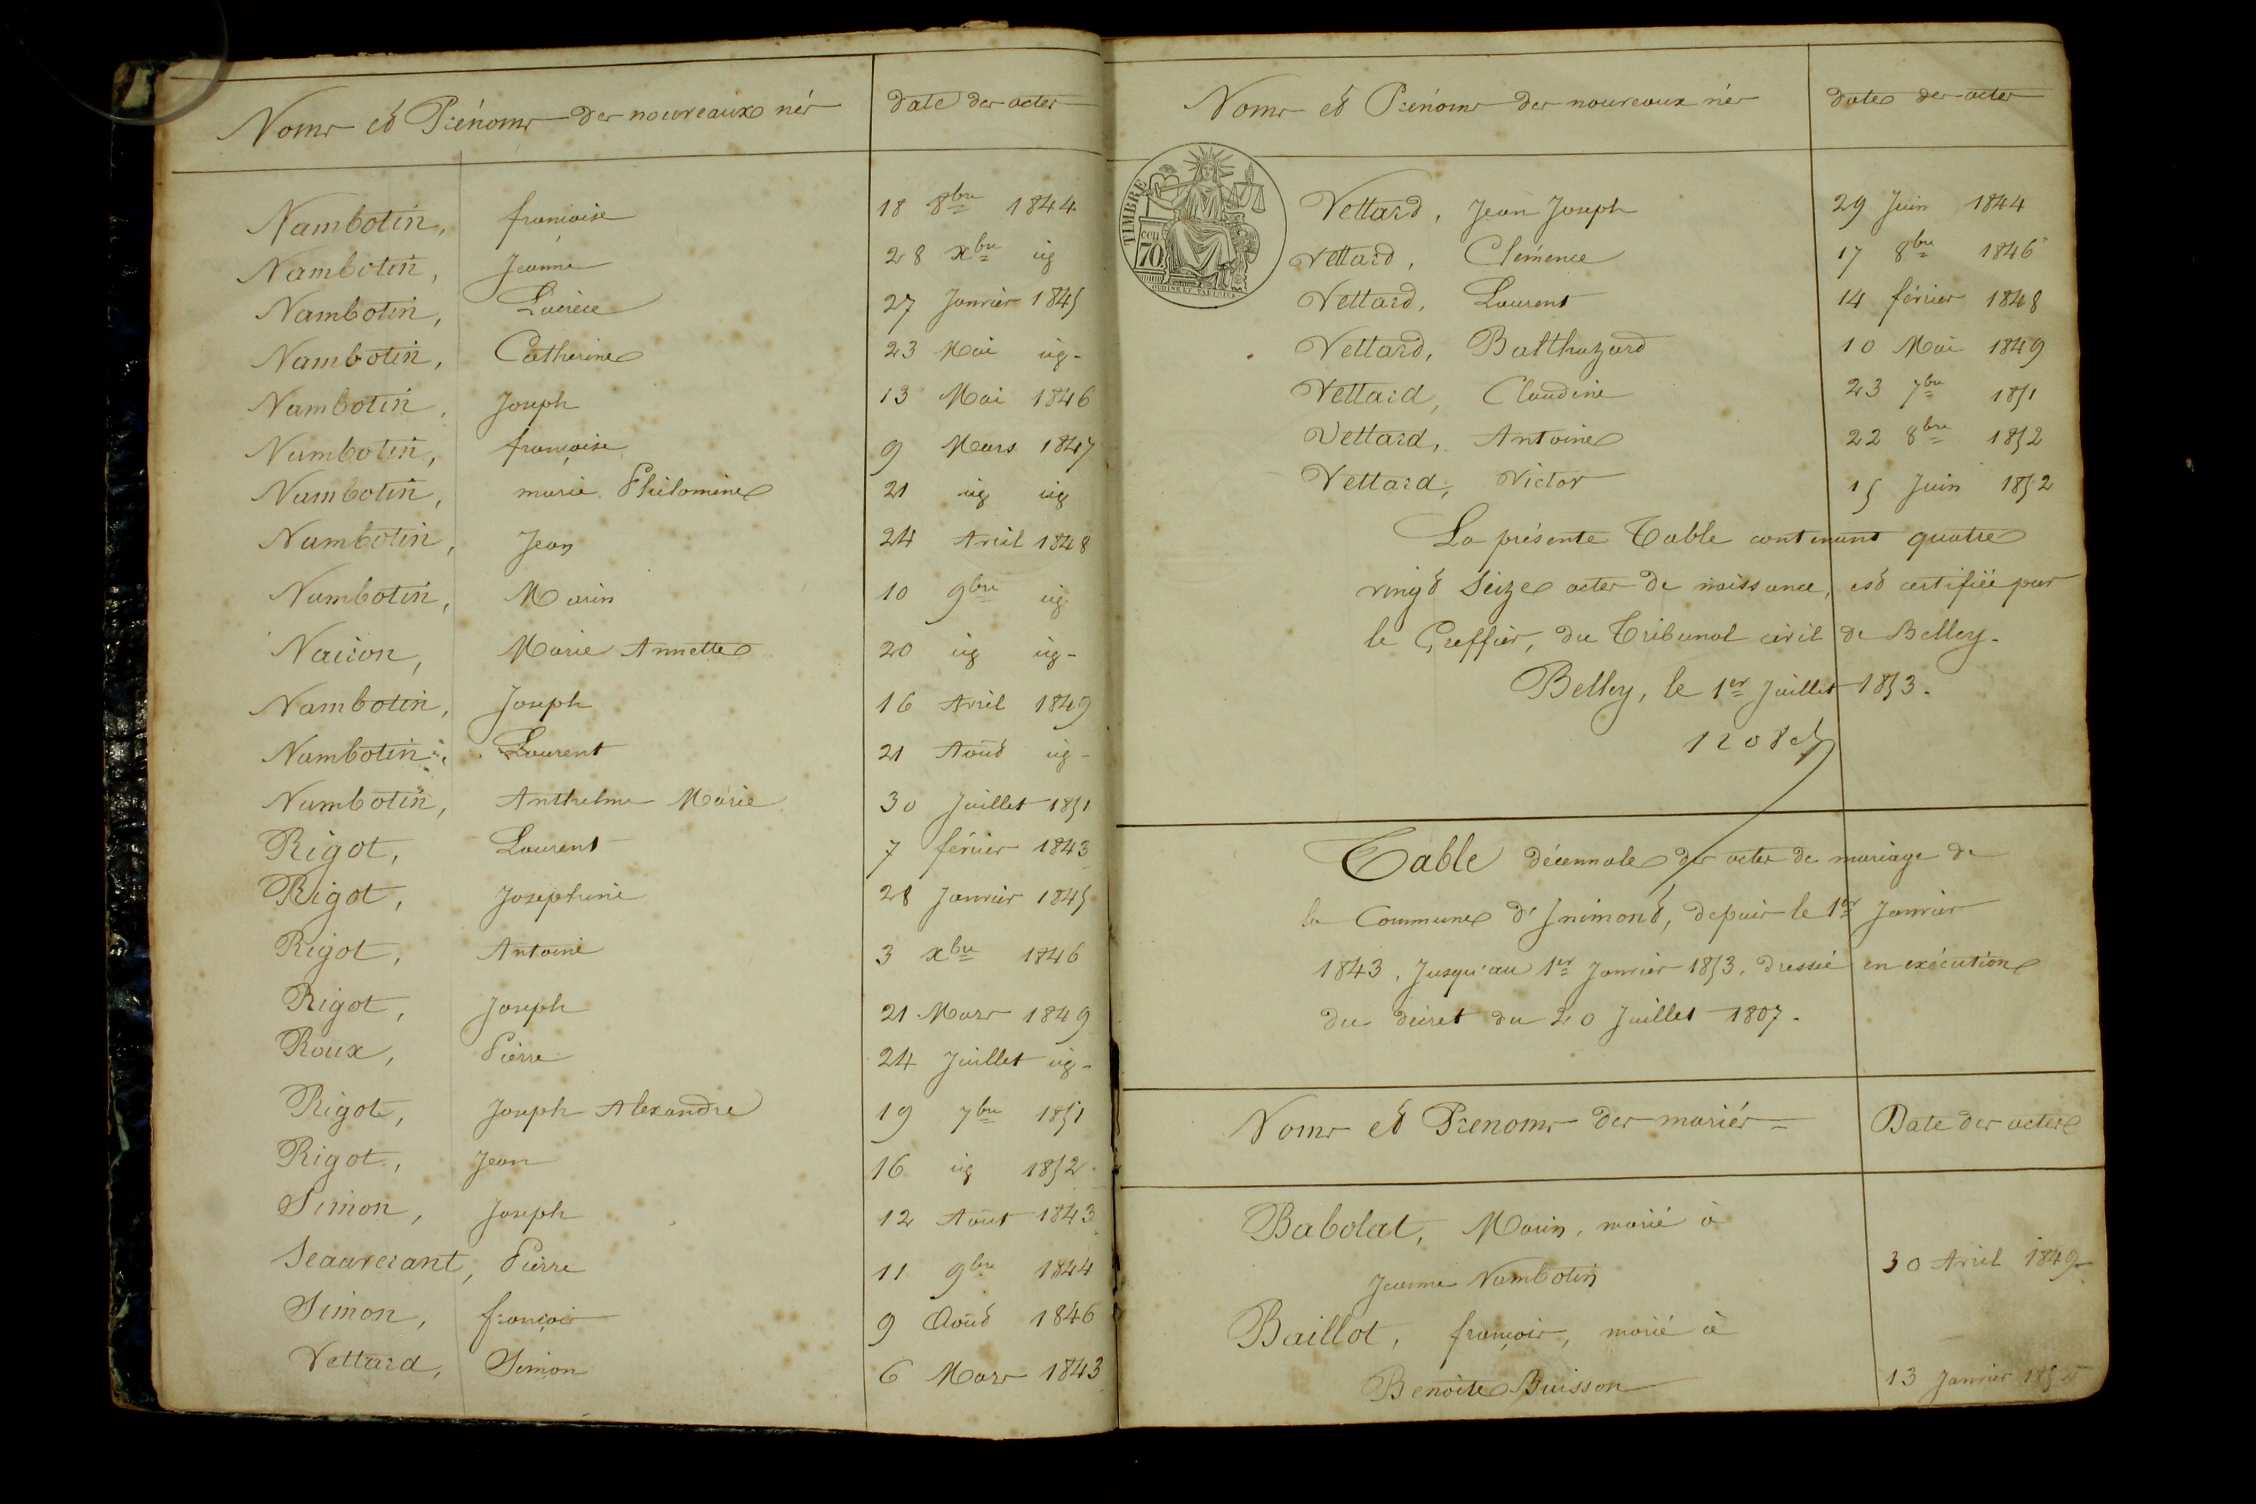 Noms et Prénoms des nouveaux nés date des actes
Nambotin, françoise 18 8bre 1844
Nambotin, Jeanne 28 xbre ig
Nambotin, Lucrèce 27 Janvier 1845
Nambotin, Catherine 23 Mai ig-
Nambotin, Joseph 13 Mai 1846
Nambotin, françoise 9 Mars 1847
Nambotin, marie Philomine 21 ig ig
Nambotin, Jean 24 Avril 1848
Nambotin, Marin 10 9bre ig
Naiion, Marie Annette 20 ig ig-
Nambotin, Joseph 16 Avril 1849
Nambotin, Laurent 21 Août ig-
Nambotin, Anthelme Marie 30 Juillet 1851
Rigot, Laurent 7 février 1843
Rigot, Josephine 28 Janvier 1845
Rigot, Antoine 3 xbre 1846
Rigot, Joseph 21 Mars 1849
Roux, Pierre 24 Juillet ig-
Rigot, Joseph Alexandre 19 7bre 1851
Rigot, Jean 16 ig 1852
Simon, Joseph 12 Août 1843
Pierre 11 9bre 1844
Simon, françois 9 Août 1846
Vettard, Simon 6 Mars 1843
Noms et Prénoms des nouveaux nés dates des actes
TIMBRE
70
Vettard, Jean Joseph 29 Juin 1844
Vettard, Clémence 17 8bre 1846
Vettard, Laurent 14 février 1848
Vettard, Balthazard 10 Mai 1849
Vettard, Claudine 23 7bre 1851
Vettard, Antoine 22 8bre 1852
Vettard, Victor 15 Juin 1852
La présente Table contenant quatre
vingt Seize actes de naissance, est certifiée par
le Greffier, du Tribunal civil de Belley-
Belley, le 1er Juillet 1853.
Table décennale des actes de mariage de
la Commune d'Inimont, depuis le 1er Janvier
1843, Jusqu'au 1er Janvier 1853, dressée en exécution
du décret du 20 Juillet 1807.
Noms et Prenoms des mariés Date des actes
Babolat, Marin, marié à
Jeanne Nambotin 30 Avril 1849
Baillot, françois, marié à
Benoite Buisson 13 Janvier